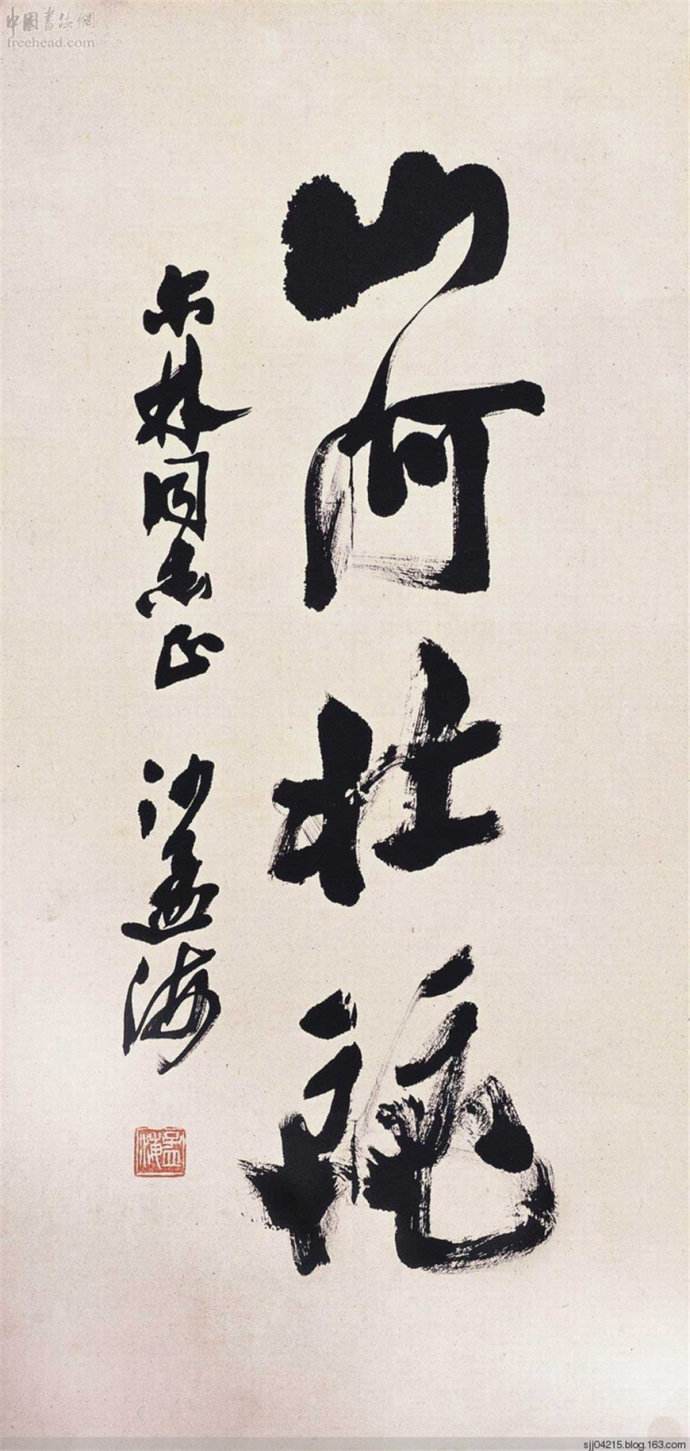 中國書法網
freehead.com
山河壮
林同志正 沙孟海
孟海
sjj04215.blog.163.com